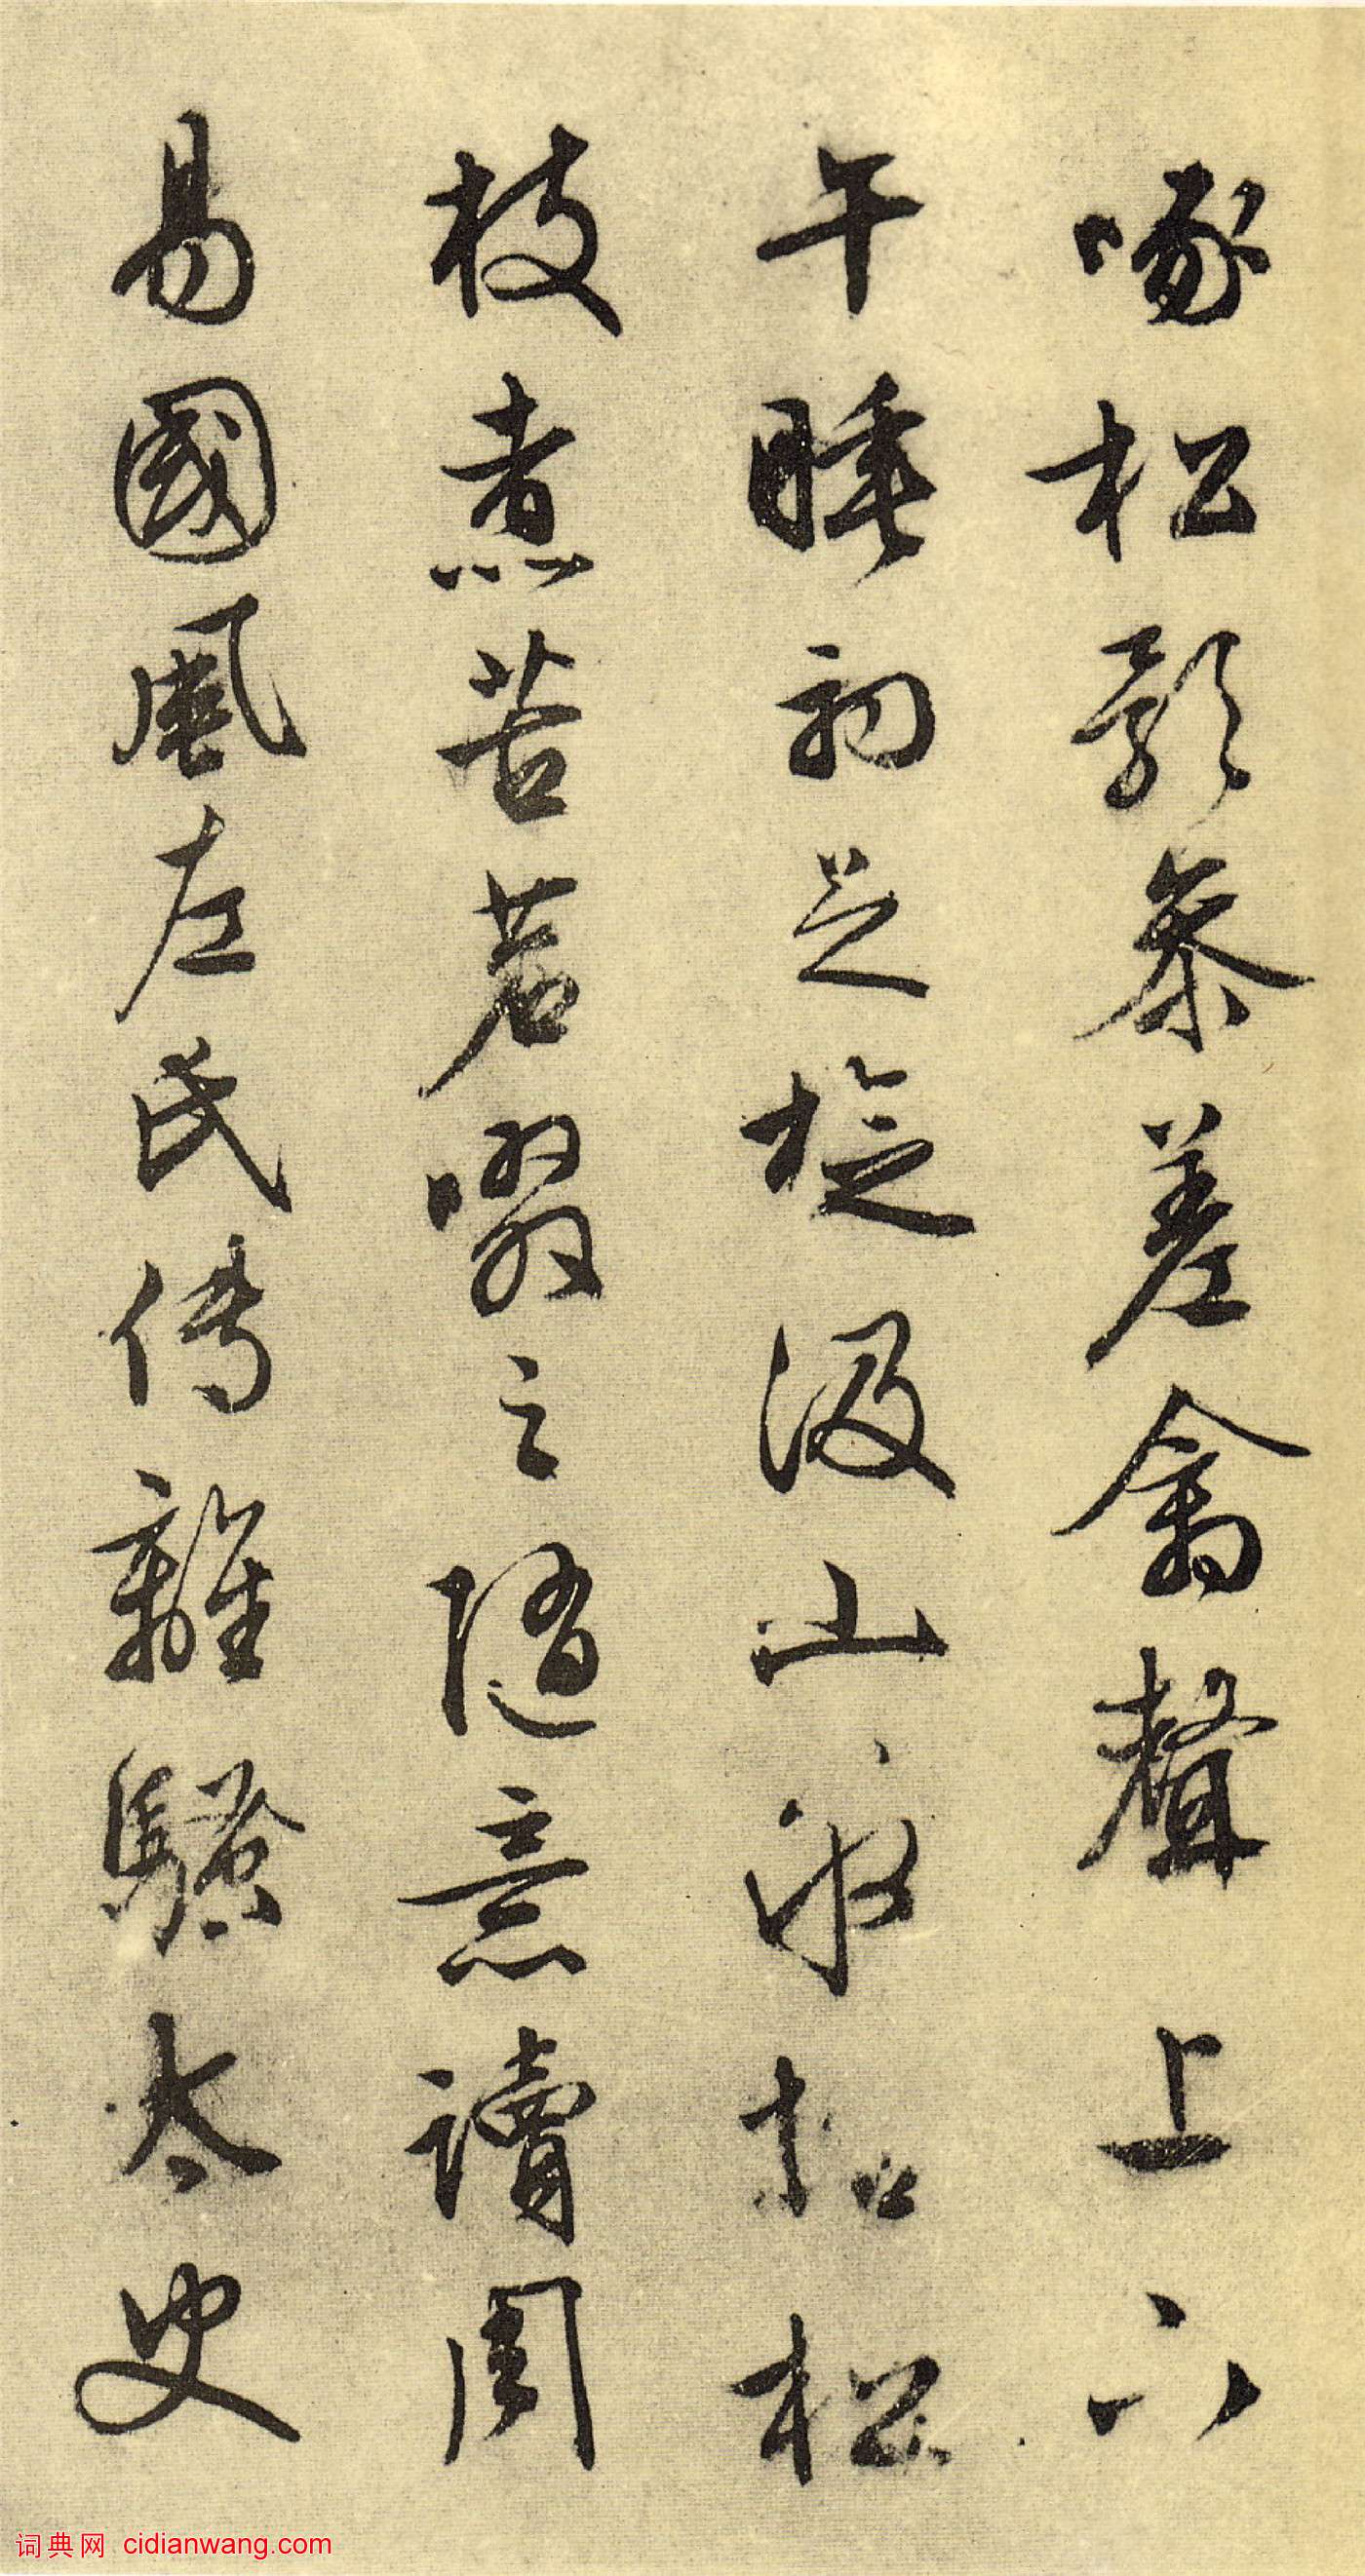 啄松影參差禽聲上下
午睡初足旋汲山泉拾松
枝煮苦茗啜之隨意讀周
易國風左氏傳離騷太史
词典网 cidianwang.com